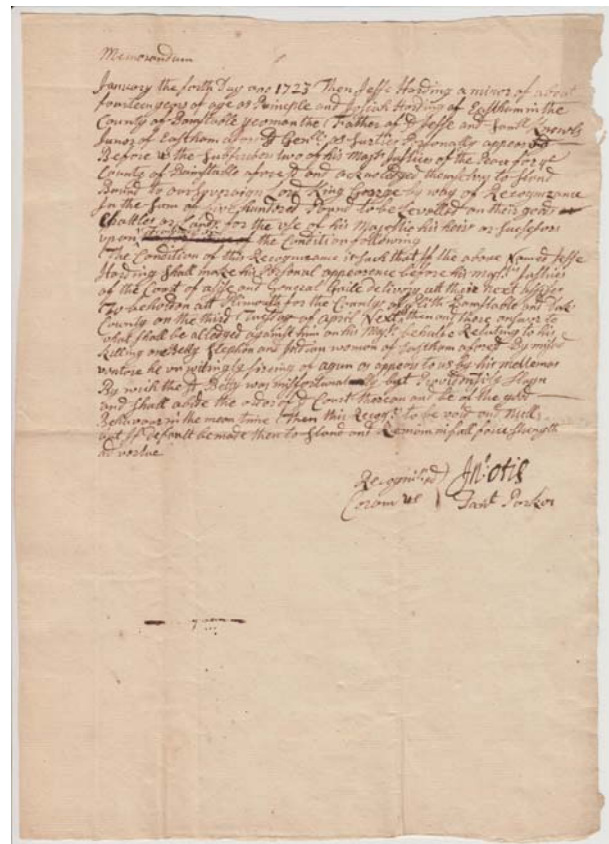 Memorandum
January the forth Day ano 1723 Then Jesse Harding a minor of about
fourteen yers of age as Prinsiple and Josiah Harding of Eastham in the
County of Barnstable yeoman the Father of sd Jesse and Saml Knowls
Junor of Eastham afor sd Genll as Surties Personally appeared
Before us the Subscribers two of his Majts Justices of the Peace for ye
County of Barnstable aforesd and acknowledged themselves to stand
Bound to our Soveraign Lord King George by way of Recognizance
In the Sum of five hundred Pound to be Levelled on their goods
Chattles or Lands for the use of his Majestie his heirs or Sucssesors
upon the Condition following
The Condition of this Recognizance is such that if the above Named Jesse
Harding Shall make his Personal appearence before his majties Justices
of the Court of assise and General Goile delivery att their next assises
To be holden att Plimouth for the County of Plith Barnstable and Duks
County on the third Tuesday of April Next then and there answer to
what shall be alledged against him on his Majts behalfe Relating to his
killing one Betty Stephen and Indian women of Eastham aforesd By misad
ventore he unwitingly fireing of a gun as appears to us by
By which the sd Betty was misfortunatly but Slayn
and shall abide the order of sd Court thereon and be of the good
Behaviour in the mean time then this Recogs to be void and Null
but if default be made then to Stand and Remain in full force Strength
ad vertue
Recognised Jno: Otis
Coram us Danl Parker